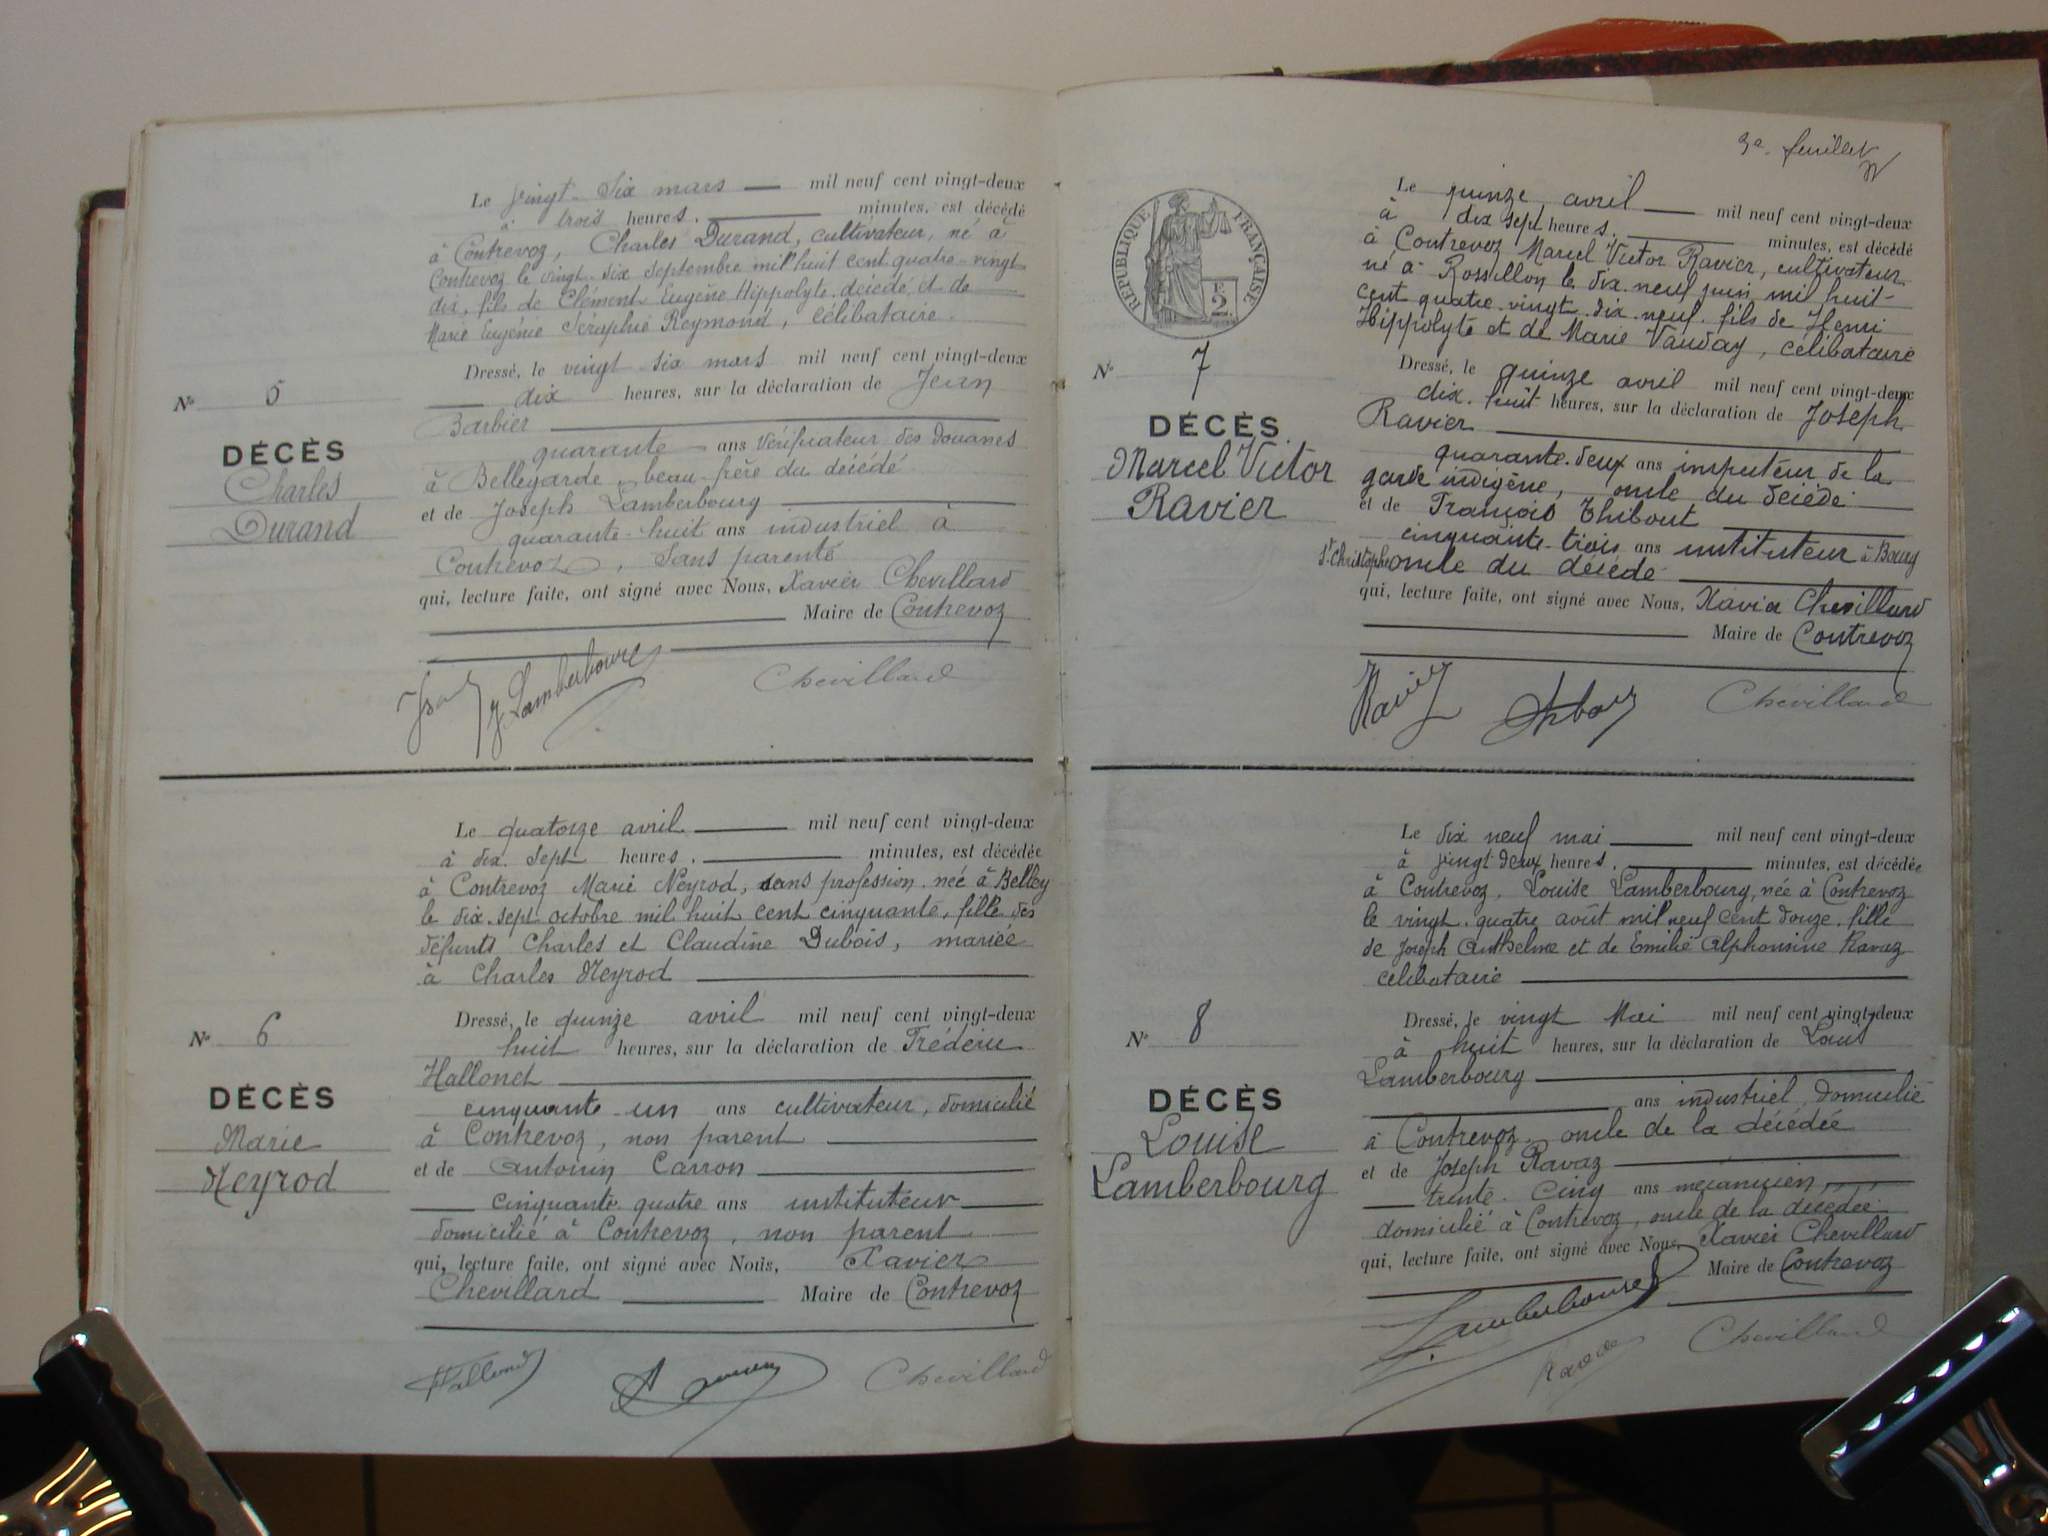 Le vingt-six mars — mil neuf cent vingt-deux
à trois heures. — minutes, est décédé
à Contrevoz, Charles Durand, cultivateur, né à
Contrevoz le vingt-six septembre mil huit cent quatre-vingt
dix, fils de Clément Eugène Hippolyte décédé et de
Marie Eugénie Séraphie Reymond, célibataire.
Dressé, le vingt-six mars mil neuf cent vingt-deux
— dix heures, sur la déclaration de Jean
Barbier —
quarante ans vérificateur des douanes
à Bellegarde, beau-frère du décédé
et de Joseph Lamberbourg —
quarante-huit ans industriel à
Contrevoz, sans parenté
qui, lecture faite, ont signé avec Nous, Xavier Chevillard
— Maire de Contrevoz
N° 5
DÉCÈS
Charles
Durand
J. Lamberbourg Chevillard
Le quatorze avril — mil neuf cent vingt-deux
à dix-sept heures. — minutes, est décédée
à Contrevoz Marie Neyrod, sans profession née à Belley
le dix-sept octobre mil huit cent cinquante, fille des
défunts Charles et Claudine Dubois, mariée
à Charles Neyrod —
Dressé, le quinze avril mil neuf cent vingt-deux
huit heures, sur la déclaration de Frédéric
Hallonet —
cinquante-un ans cultivateur, domicilié
à Contrevoz, non parent —
et de Antonin Carron —
— cinquante-quatre ans instituteur —
domicilié à Contrevoz, non parent
qui, lecture faite, ont signé avec Nous, Xavier
Chevillard — Maire de Contrevoz
N° 6
DÉCÈS
Marie
Neyrod
Hallonet Chevillard
3e feuillet
RÉPUBLIQUE FRANÇAISE
2
Le quinze avril — mil neuf cent vingt-deux
à dix sept heures. — minutes, est décédé
à Contrevoz Marcel Victor Ravier, cultivateur
né à Rossillon le dix-neuf juin mil huit-
cent quatre-vingt-dix-neuf fils de Henri
Hippolyte et de Marie Vauday, célibataire
Dressé, le quinze avril mil neuf cent vingt-deux
dix-huit heures, sur la déclaration de Joseph
Ravier —
quarante-deux ans inspecteur de la
garde indigène, oncle du décédé
et de François Thibout —
cinquante-trois ans instituteur à Bourg
St Christophe oncle du décédé —
qui, lecture faite, ont signé avec Nous, Xavier Chevillard
— Maire de Contrevoz
N° 7
DÉCÈS
Marcel Victor
Ravier
Ravier Thibout Chevillard
Le dix neuf mai — mil neuf cent vingt-deux
à vingt-deux heures. — minutes, est décédée
à Contrevoz, Louise Lamberbourg, née à Contrevoz
le vingt-quatre août mil neuf cent douze, fille
de Joseph Anthelme et de Emilie Alphonsine Ravaz
célibataire —
Dressé, le vingt Mai mil neuf cent vingt-deux
à huit heures, sur la déclaration de Louis
Lamberbourg —
— ans industriel, domicilié
à Contrevoz, oncle de la décédée
et de Joseph Ravaz —
— trente-cinq ans mécanicien
domicilié à Contrevoz, oncle de la décédée
qui, lecture faite, ont signé avec Nous, Xavier Chevillard
— Maire de Contrevoz
N° 8
DÉCÈS
Louise
Lamberbourg
Lamberbourg Ravaz Chevillard